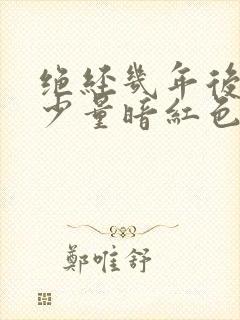 绝经几年後
少量暗红色
鄭唯舒